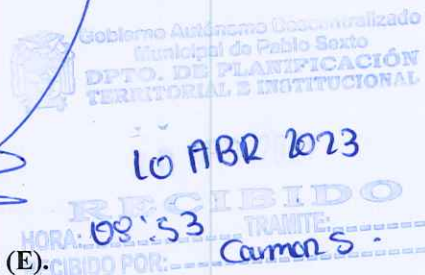 Gobierno Autónomo Descentralizado
Municipal de Pablo Sexto
DPTO. DE PLANIFICACIÓN
TERRITORIAL E INSTITUCIONAL
10 ABR 2023
RECIBIDO
HORA: 08:53 TRAMITE:
(E). RECIBIDO POR: Carmen S.